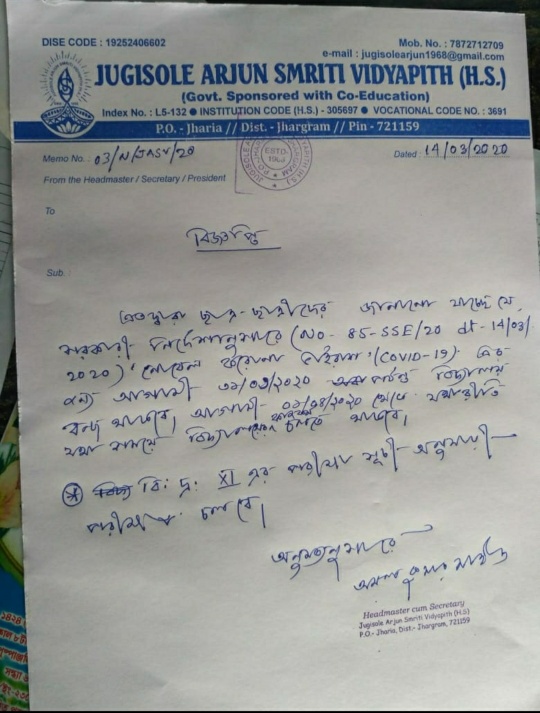 DISE CODE : 19252406602
Mob. No. : 7872712709
e-mail : jugisolearjun1968@gmail.com
JUGISOLE ARJUN SMRITI VIDYAPITH (H.S.)
(Govt. Sponsored with Co-Education)
Index No. : L5-132 ● INSTITUTION CODE (H.S.) - 305697 ● VOCATIONAL CODE NO. : 3691
P.O. - Jharia // Dist. - Jhargram // Pin - 721159
Memo No. 03/N/JASV/20
Dated 14/03/2020
ESTD-1968
From the Headmaster / Secretary / President
To
বিজ্ঞপ্তি
Sub. :
এতদ্বারা ছাত্র-ছাত্রীদের জানানো যাচ্ছে যে,
সরকারী নির্দেশানুসারে (No - 85-SSE/20 dt - 14/03/
2020) 'নোবেল করোনা ভাইরাস' (COVID-19) এর
জন্য আগামী ৩১/০৩/২০২০ পর্যন্ত বিদ্যালয়
বন্ধ থাকবে। আগামী ০১/০৪/২০২০ থেকে যথারীতি
যথা সময়ে বিদ্যালয়ের চলতে থাকবে।
বি: দ্র: XI এর পরীক্ষা সূচী অনুযায়ী
পরীক্ষা চলবে।
অনুমত্যনুসারে
Headmaster cum Secretary
Jugisole Arjun Smriti Vidyapith (H.S)
P.O.- Jharia, Dist.- Jhargram, 721159